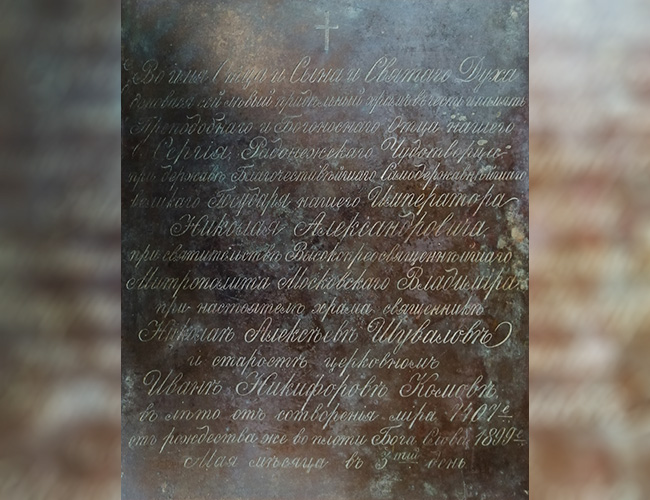 Во имя Отца и Сына и Святаго Духа
основася сей новый придельный храмъ в честь и память
Преподобнаго и Богоноснаго Отца нашего
Сергія, Радонежскаго Чудотворца
при державѣ Благочестивѣйшаго Самодержавнѣйшаго
великаго Государя нашего Императора
Николая Александровича
при святительствѣ Высокопреосвященнѣйшаго
Митрополита Московскаго Владиміра
при настоятелѣ храма священникѣ
Николаѣ Алексѣевѣ Шуваловѣ
и старостѣ церковномъ
Иванѣ Никифоровѣ Комовѣ
въ лѣто отъ сотворенья міра 7407е
отъ рождества же во плоти Бога Слова 1899е
Мая мѣсяца въ 3тий день